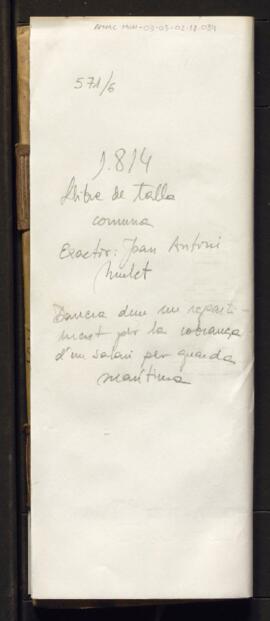 AMMC MUN-03-03-02-18.034
571/6
1.814
Llibre de talla
comuna
Exactor: Joan Antoni
Mulet
Darrera duu un reparti-
ment per la cobrança
d'un salari per guarda
marítima